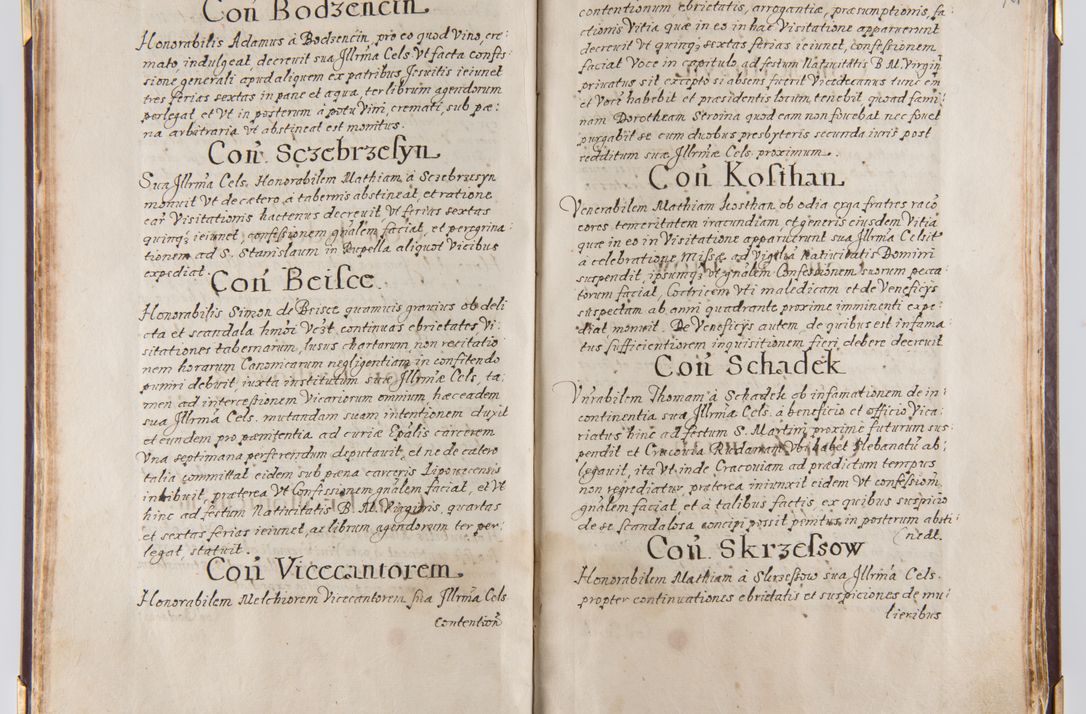 Con̄ Bodzencin
Honorabilis Adamus à Bodzencin, pro eo quod vino, cre:
mato indulgeat, decreuit sua Jllrma Cels. Vt facta confes
sione generali apud aliquem ex patribus Jesuitis ieiunet
tres ferias sextas in pane et aqua, ter librum agendorum
perlegat et Vt in posterum à potu vini, cremati, sub pœ:
na arbitraria Vt abstineat est monitus.
Con̄ Sczebrzesyn
Sua Jllrma Cels. Honorabilem Mathiam à Sczebrzesyn
monuit Vt de cætero à tabernis abstineat, et ratione
ear Visitationis hactenus decreuit Vt ferias sextas
quinq; ieiunet, confessionem gnālem faciat, et peregrina:
tionem ad S. Stanislaum in Rupella aliquot Vicibus
expediat.
Con̄ Beisce
Honorabilis Simon de Beisce quamuis grauius ob deli
cta et scandala hmōi Vczt continuas ebrietates Vi:
sitationes tabernarum, lusus chartarum non recitatio
nem horarum Canonicarum negligentiam in confitendo
puniri debuit iuxta institutum suæ Jllrmæ Cels. ta:
men ad intercessionem Vicariorum omnium, hac eadem
sua Jllrma Cels. mutandam suam intentionem duxit
et eundem pro pœnitentia ad curiæ Epālis carcerem
Vna septimana perferendum deputauit, et ne de cætero
talia committat eidem sub pœna carceris Lipouecensis
inhibuit, præterea Vt Confessionem gnālem faciat, et Vt
hinc ad festum Natiuitatis B. M. Virginis, quartas
et sextas ferias ieiunet, ac librum agendorum ter per:
legat, statuit.
Con̄ Vicecantorem
Honorabilem Melchiorem Vicecantorem sua Jllrma Cels
Contention̄
contentionum ebrietatis, arrogantiæ, præsumptionis, fa:
ctionis Vitia quæ in eo in hac Visitatione apparuerunt
decreuit Vt quinq; sextas ferias ieiunet, confessionem
faciat Voce in capitulo ad festum Natiuitatis B. M. Virgin̄
priuatus sit excepto si absens fuerit Vicedecanus tunc en̄
et Voci habebit et præsidentis locum tenebit, quoad fœmi
nam Dorotheam Stroina quod eam non fouebat nec fouet
purgabit se cum duobus presbyteris secunda iuris post
redditum suæ Jllrmæ Cels. proximum.
Con̄ Kosthan
Venerabilem Mathiam Kosthan ob odia erga fratres raco
coros temeritatem iracundiam, et generis eiusdem Vitia
quæ in eo in Visitatione apparuerunt sua Jllrma Celsit
à celebratione Missæ ad Vigiliā Natiuitatis Domini
suspendit, ipsumq; Vt gnālem Confessionem suorum pecca
torum faciat, Coctricem Vti maledicam et de Veneficÿs
suspectam ab anni quadrante proxime imminenti expe:
diat monuit. De Veneficÿs autem, de quibus est infama:
tus sufficientiorem inquisitionem fieri debere decreuit
Con̄ Schadek
Vnrabilem Thomam à Schadek ob infamationem de in:
continentia sua Jllrma Cels. à beneficio et officio Vica:
riatus hinc ad festum S. Martini proxime futurum sus:
pendit et Cracouia Rudamam Vbi habet Plebanatū ab:
legauit, ita Vt inde Cracouiam ad prædictum tempus
non regrediatur, præterea iniunxit eidem Vt confessioem
gnālem faciat, et à talibus factis ex quibus suspicio
de se scandalosa concipi possit penitus, in posterum absti:
nedt.
Con̄ Skrzessow
Honorabilem Mathiam à Skrzessow sua Jllrma Cels.
propter continuationes ebrietatis et suspiciones de mu:
lieribus